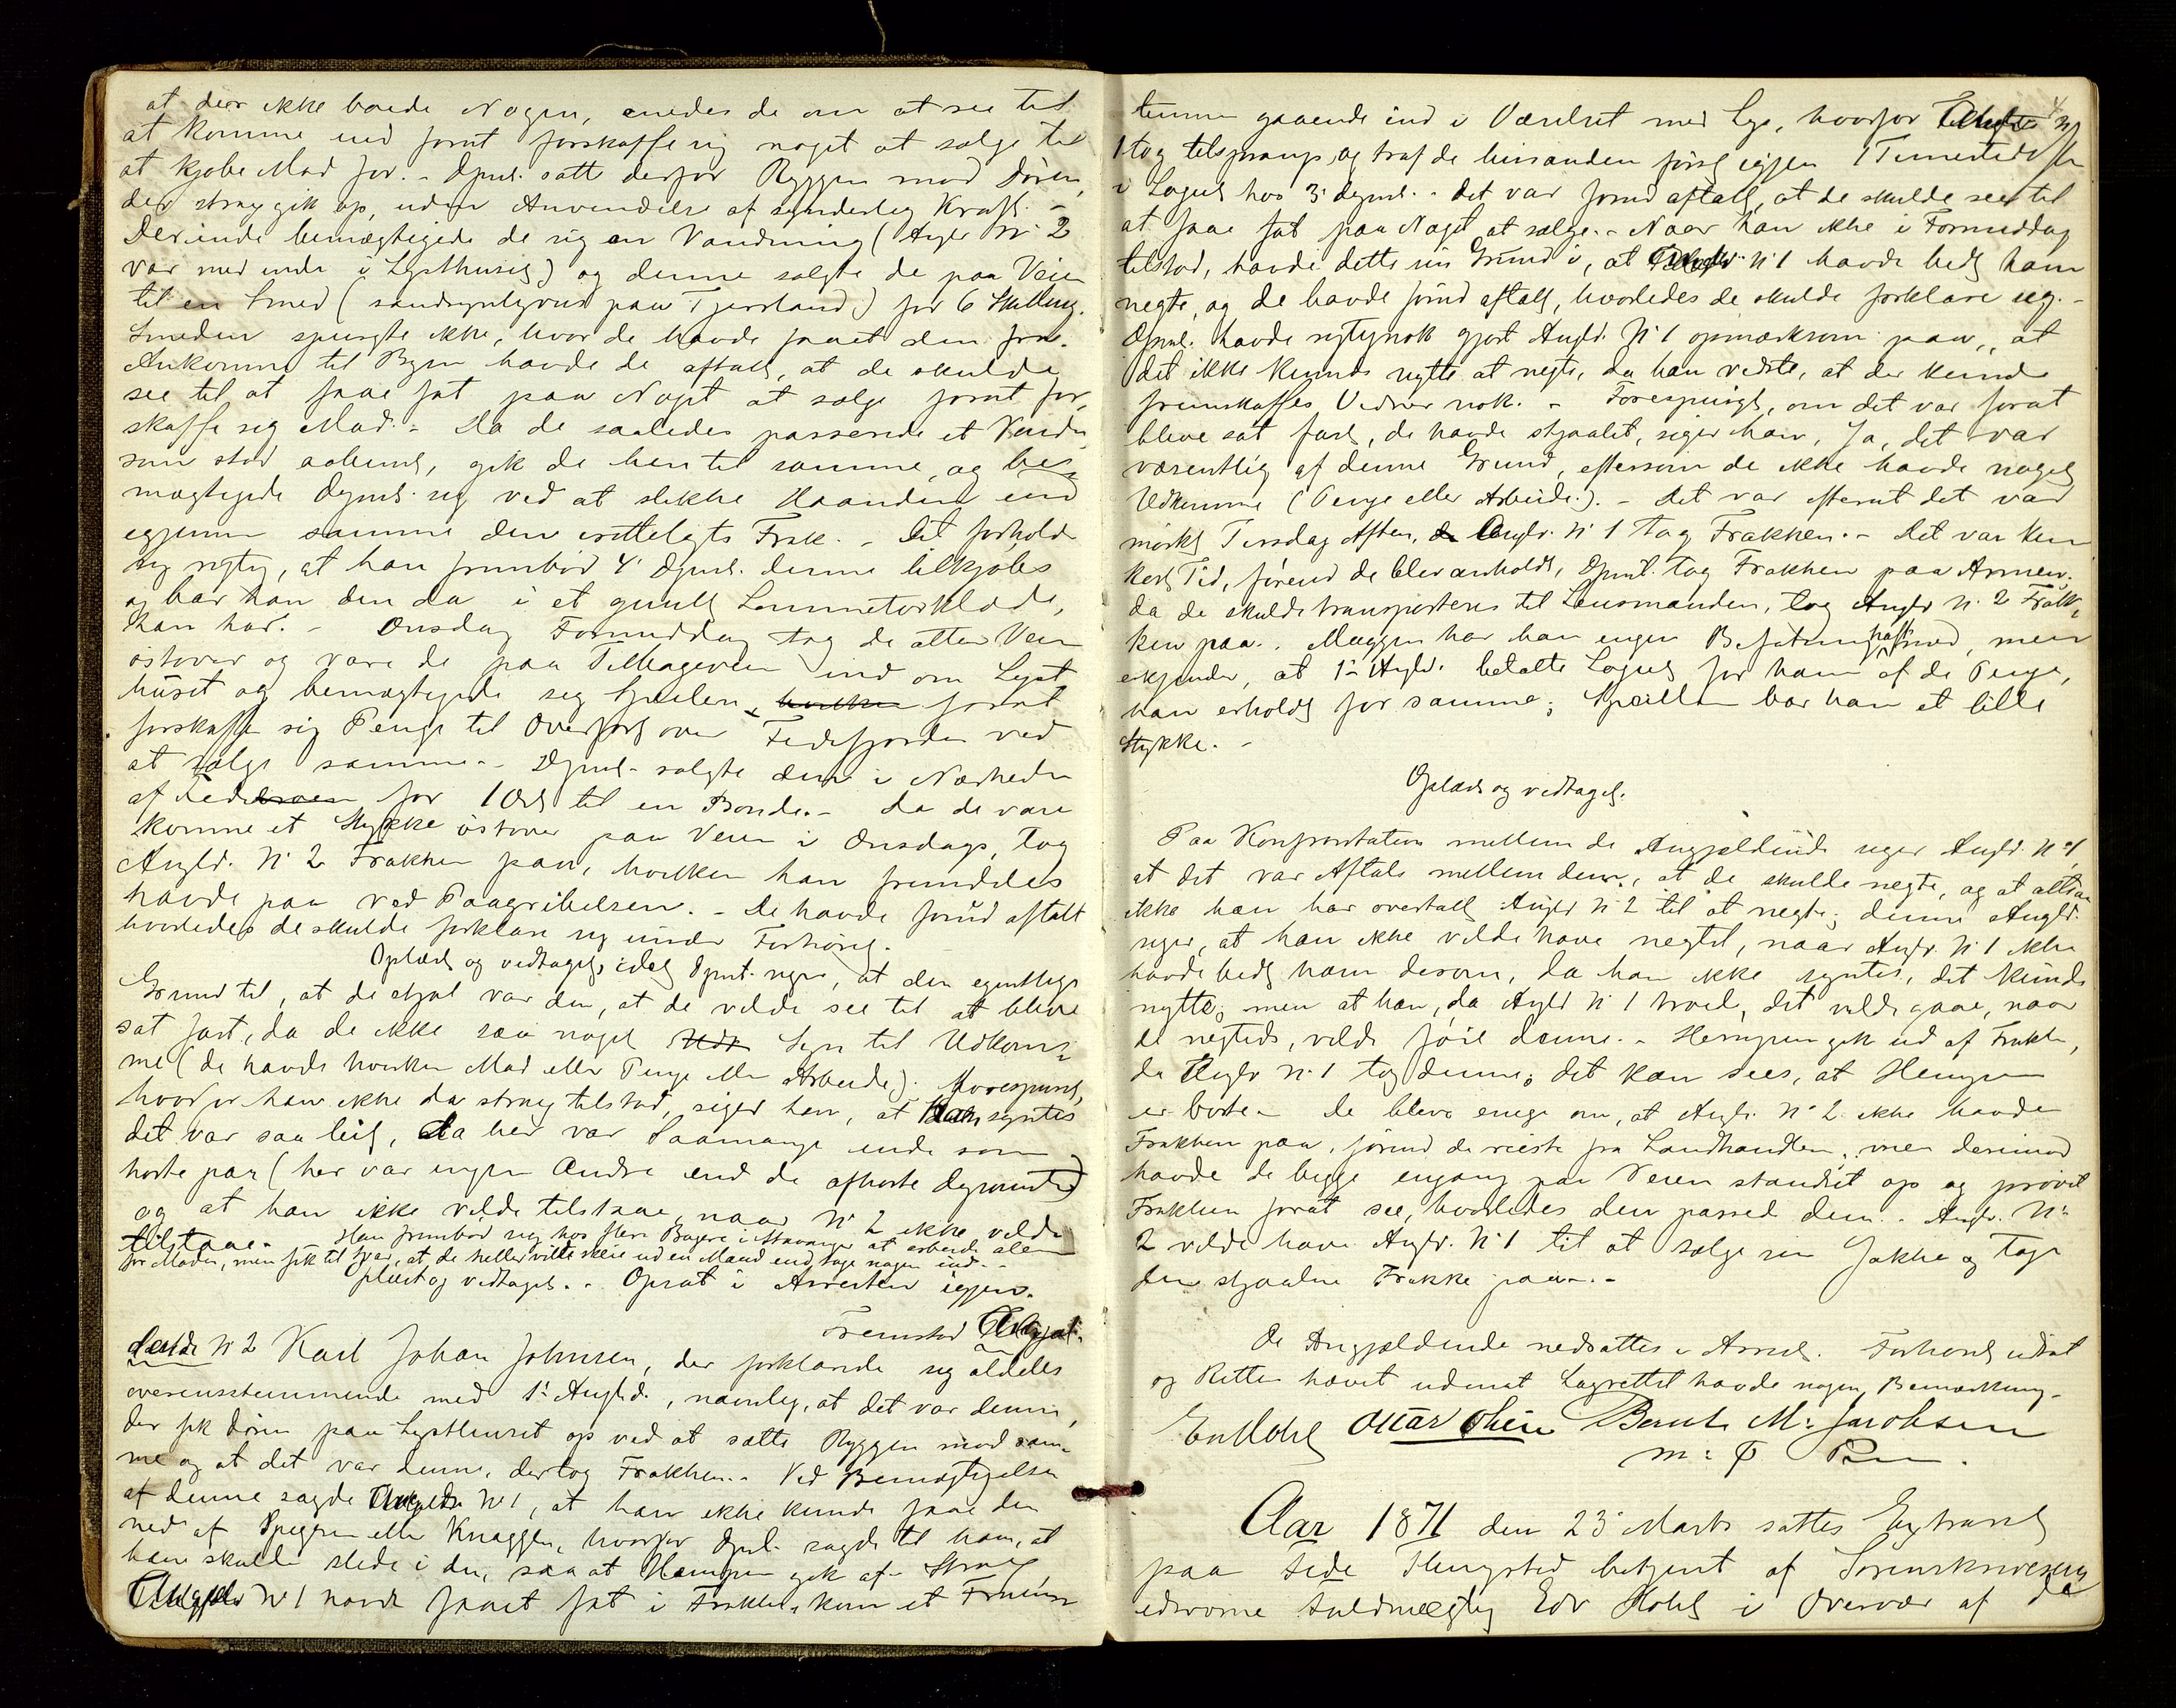 at der ikke boede Nogen, enedes de om at see til
at komme ind forat forskaffe sig noget at sælge til
at kjøbe Mad for. - Dpnt. satte derfor Ryggen mod Døren,
der strax gik op, uden Anvendelse af synderlig Kraft. -
Derinde bemægtigede de sig en Vandring (Angld. No 2
var med inde i Lysthuset) og denne solgte de paa Veien
til en Smed (sandsynligvis paa Tjorsland) for 6 Skilling.
Smeden spurgte ikke, hvor de havde faaet den fra.
Ankomne til Byen havde de aftalt, at de skulde
see til at faae fat paa Noget at sælge forat for-
skaffe sig Mad. - Da de saaledes passerede et Vindu
som stod aabent, gik de hen til samme, og be-
mægtigede Dpnt. sig ved at stikke Haanden ind
igjennem samme den irettelagte Frak. - Det forholder
sig rigtig, at han frembød 4' Dpnt. denne tilkjøbs
og bar han den da i et guult Lommetørklæde,
han har. - Onsdag Formiddag tog de atter Veien
østover og vare de paa Tilbageveien ind om Lyst
huset og bemægtigede sig Speilen, hvilken forat
forskaffe sig Penge til Overfart over Fedefjorden ved
at sælge samme. - Dpnt. solgte den i Nærheden
af Fede for 1 Ort til en Bonde. - Da de vare
komne et Stykke østover paa Veien i Onsdags, tog
Angld. No 2 Frakken paa, hvilken han fremdeles
havde paa ved Paagribelsen. - De havde forud aftalt
hvorledes de skulde forklare sig under Forhøret.
Oplæst og vedtaget, idet Dpnt. siger, at den egentlige
Grund til, at de stjal var den, at de vilde see til at blive
sat fast, da de ikke saa noget Syn til Udkom-
me (de havde hverken Mad eller Penge eller Arbeide). Forespurgt,
hvorfor han ikke da strax tilstod, siger han, at han syntes
det var saa leit, da her var saamange inde som
hørte paa (her var ingen Andre end de afhørte Deponenter)
og at han ikke vilde tilstaae, naar No 2 ikke vilde
tilstaae. - Han frembød sig hos flere Bagere i Stavanger at arbeide alene
for Maden, men fik til Svar, at de heller vilde skille ud en Mand end tage nogen ind. -
Oplæst og vedtaget. - Opsat i Arresten igjen.
Fremstod Angjæl-
dende No 2 Karl Johan Johnsen, der forklarede sig aldeles
overensstemmende med 1' Angld., navnlig, at det var denne,
der fik Døren paa Lysthuset op ved at sætte Ryggen mod sam-
me og at det var denne, der tog Frakken. - Ved Bemægtigelsen
af denne sagde Angjeld. No 1, at han ikke kunde faae den
ned af Spigeren eller Knaggen, hvorfor Dpnt. sagde til ham, at
han skulde slide i den, saa at Hempen gik af. Strax
Angjeld No 1 havde faaet fat i Frakken, kom et Fruen-
timmer gaaende ind i Værelset med Lys, hvorfor Angld. No
1 tog tilsprangs og traf de hinanden først igjen 1 Times Tid efter
i Logiet hos 3' Dpnt. - Det var forud aftalt, at de skulde see til
at faae fat paa Noget at sælge. - Naar han ikke i Formiddag
tilstod, havde dette sin Grund i, at Angld. No 1 havde bedt ham
negte, og de havde forud aftalt, hvorledes de skulde forklare sig. -
Dpnt. havde rigtignok gjort Angld. No 1 opmærksom paa, at
det ikke kunde nytte at negte, da han vidste, at der kunde
fremskaffes Vidner nok. - Forespurgt, om det var forat
blive sat fast, de havde stjaalet, siger han, Ja, det var
væsentlig af denne Grund, eftersom de ikke havde noget
Udkomme (Penge eller Arbeide). - Det var efterat det var
mørkt Tirsdag Aften, Angld. No 1 tog Frakken. - Det var kun
kort Tid, førend de blev anholdt, Dpnt. tog Frakken paa Armen.
da de skulde transporteres til Lensmanden, tog Angld No 2 Frak-
ken paa. - Muggen har han ingen Befatning havt med, men
erkjender, at 1' Angld. betalte Logiet for ham af de Penge,
han erholdt for samme; Speillen bar han et lille
Stykke. -
Oplæst og vedtaget.
Paa Konfrontation mellem de Angjældende siger Angld. No 1,
at det var Aftale mellem dem, at de skulde negte, og at altsaa
ikke han har overtalt Angld No 2 til at negte; denne Angld.
siger, at han ikke vilde have negtet, naar Angld. No 1 ikke
havde bedt ham derom, da han ikke syntes, det kunde
nytte, men at han, da Angld No 1 troede, det vilde gaae, naar
de negtede, vilde føie denne. - Hempen gik ud af Frakken,
da Angld No 1 tog denne; det kan sees, at Hempen
er borte. De bleve enige om, at Angld. No 2 ikke havde
Frakken paa, førend de reiste fra Landhandleren, men derimod
havde de begge engang paa Veien standset op og prøvet
Frakken forat see, hvorledes den passed dem. - Angld. No
2 vilde have Angld. No 1 til at sælge sin Jakke og tage
den stjaalne Frakke paa. -
De Angjældende nedsattes i Arrest. Forhøret udsat
og Retten hævet uden at Lagrettet havde nogen Bemærkning.
Edv Hohlt Ottar Olsen Bernt M. Jacobsen
m: f: Pen.
Aar 1871 den 23' Marts sattes Extraret
paa Fede Thingsted betjent af Sorenskriverens
edsvorne Fuldmægtig Edv Hohlt i Overvær af de